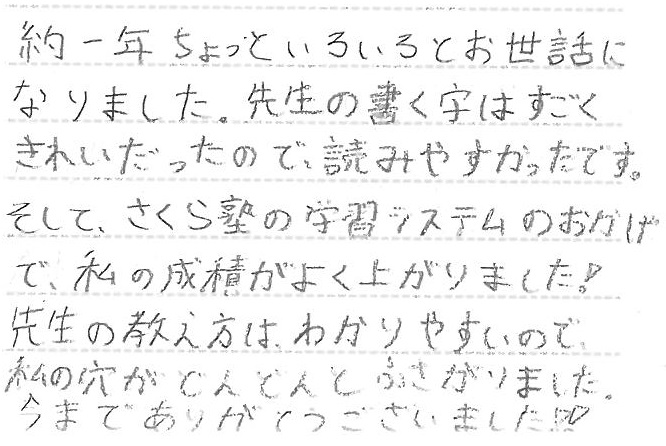 約一年ちょっといろいろとお世話に
なりました。先生の書く字はすごく
きれいだったので、読みやすかったです。
そして、さくら塾の学習システムのおかげ
で、私の成積がよく上がりました!
先生の教え方は、わかりやすいので、
私の穴がどんどんとふさがりました。
今までありがとうございました!!